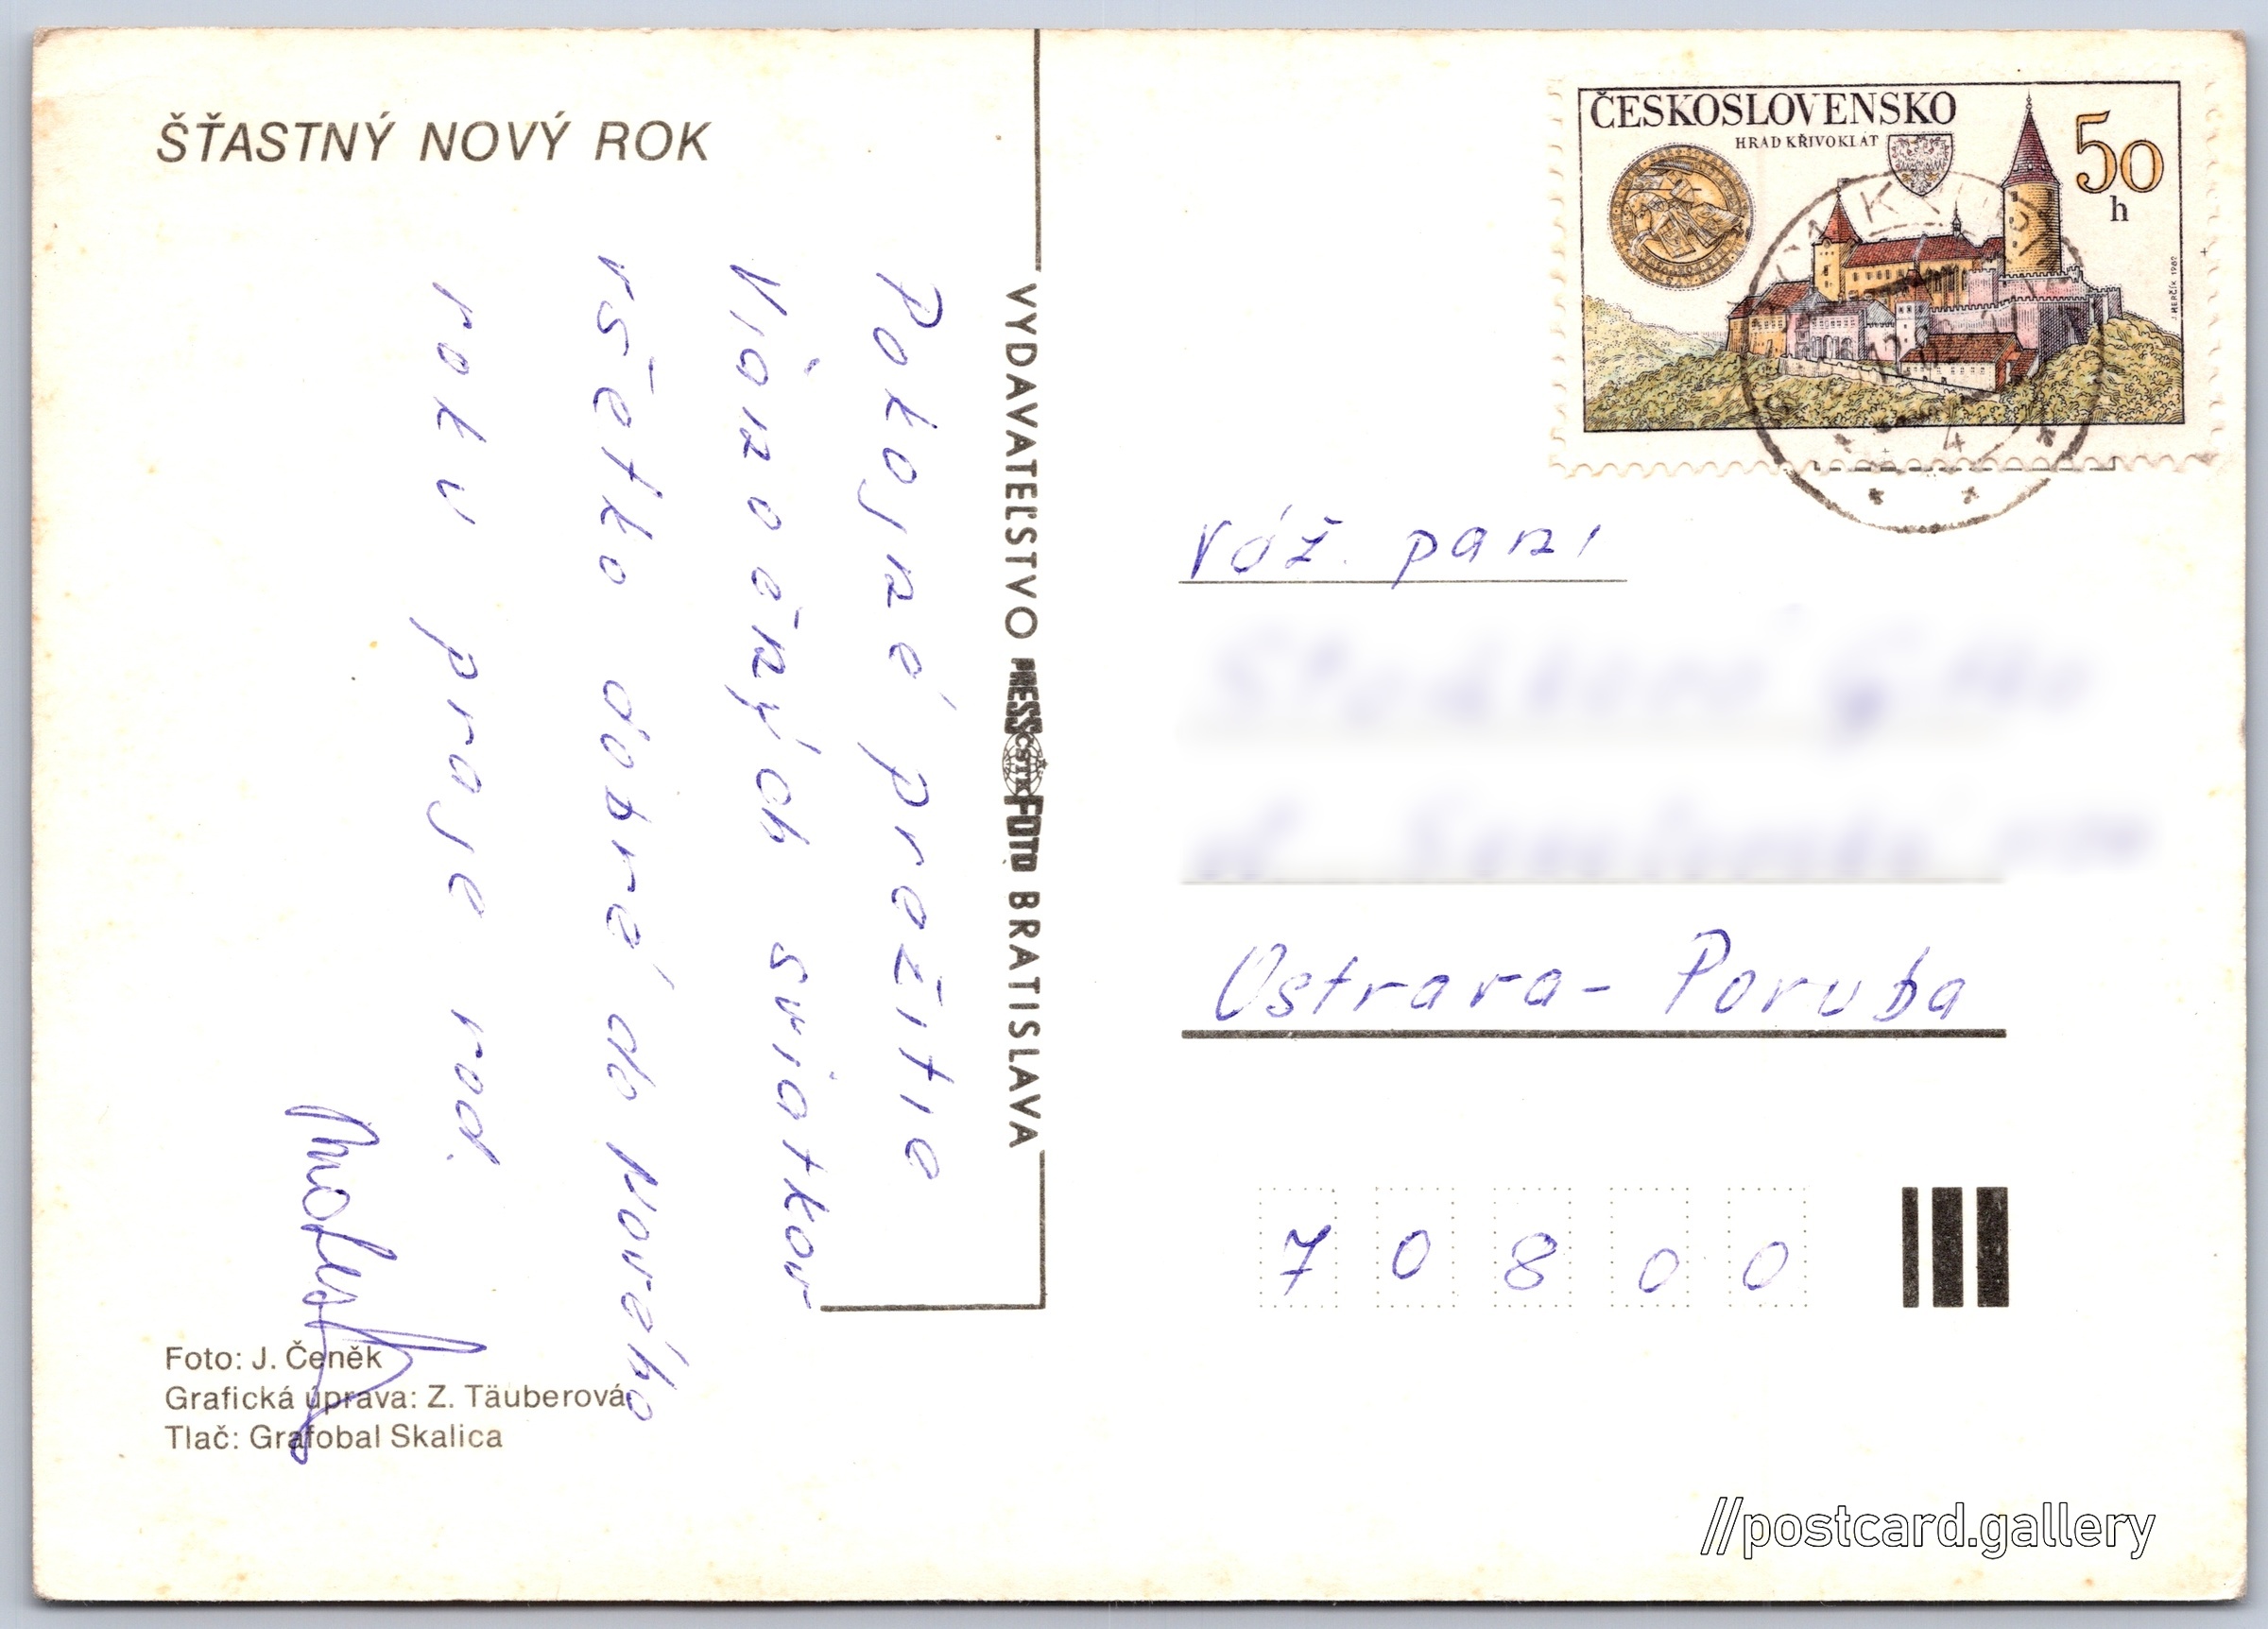 ŠŤASTNÝ NOVÝ ROK
Pokojné prežitie
Vianočných sviatkov
všetko dobré do Nového
roku praje rod.
Foto: J. Čeněk
Grafická úprava: Z. Täuberová
Tlač: Grafobal Skalica
VYDAVATEĽSTVO PRESSFOTO BRATISLAVA
ČSTK
ČESKOSLOVENSKO
HRAD KŘIVOKLÁT
50
h
J. HERČÍK 1982
váž. pani
Ostrava - Poruba
7 0 8 0 0
//postcard.gallery